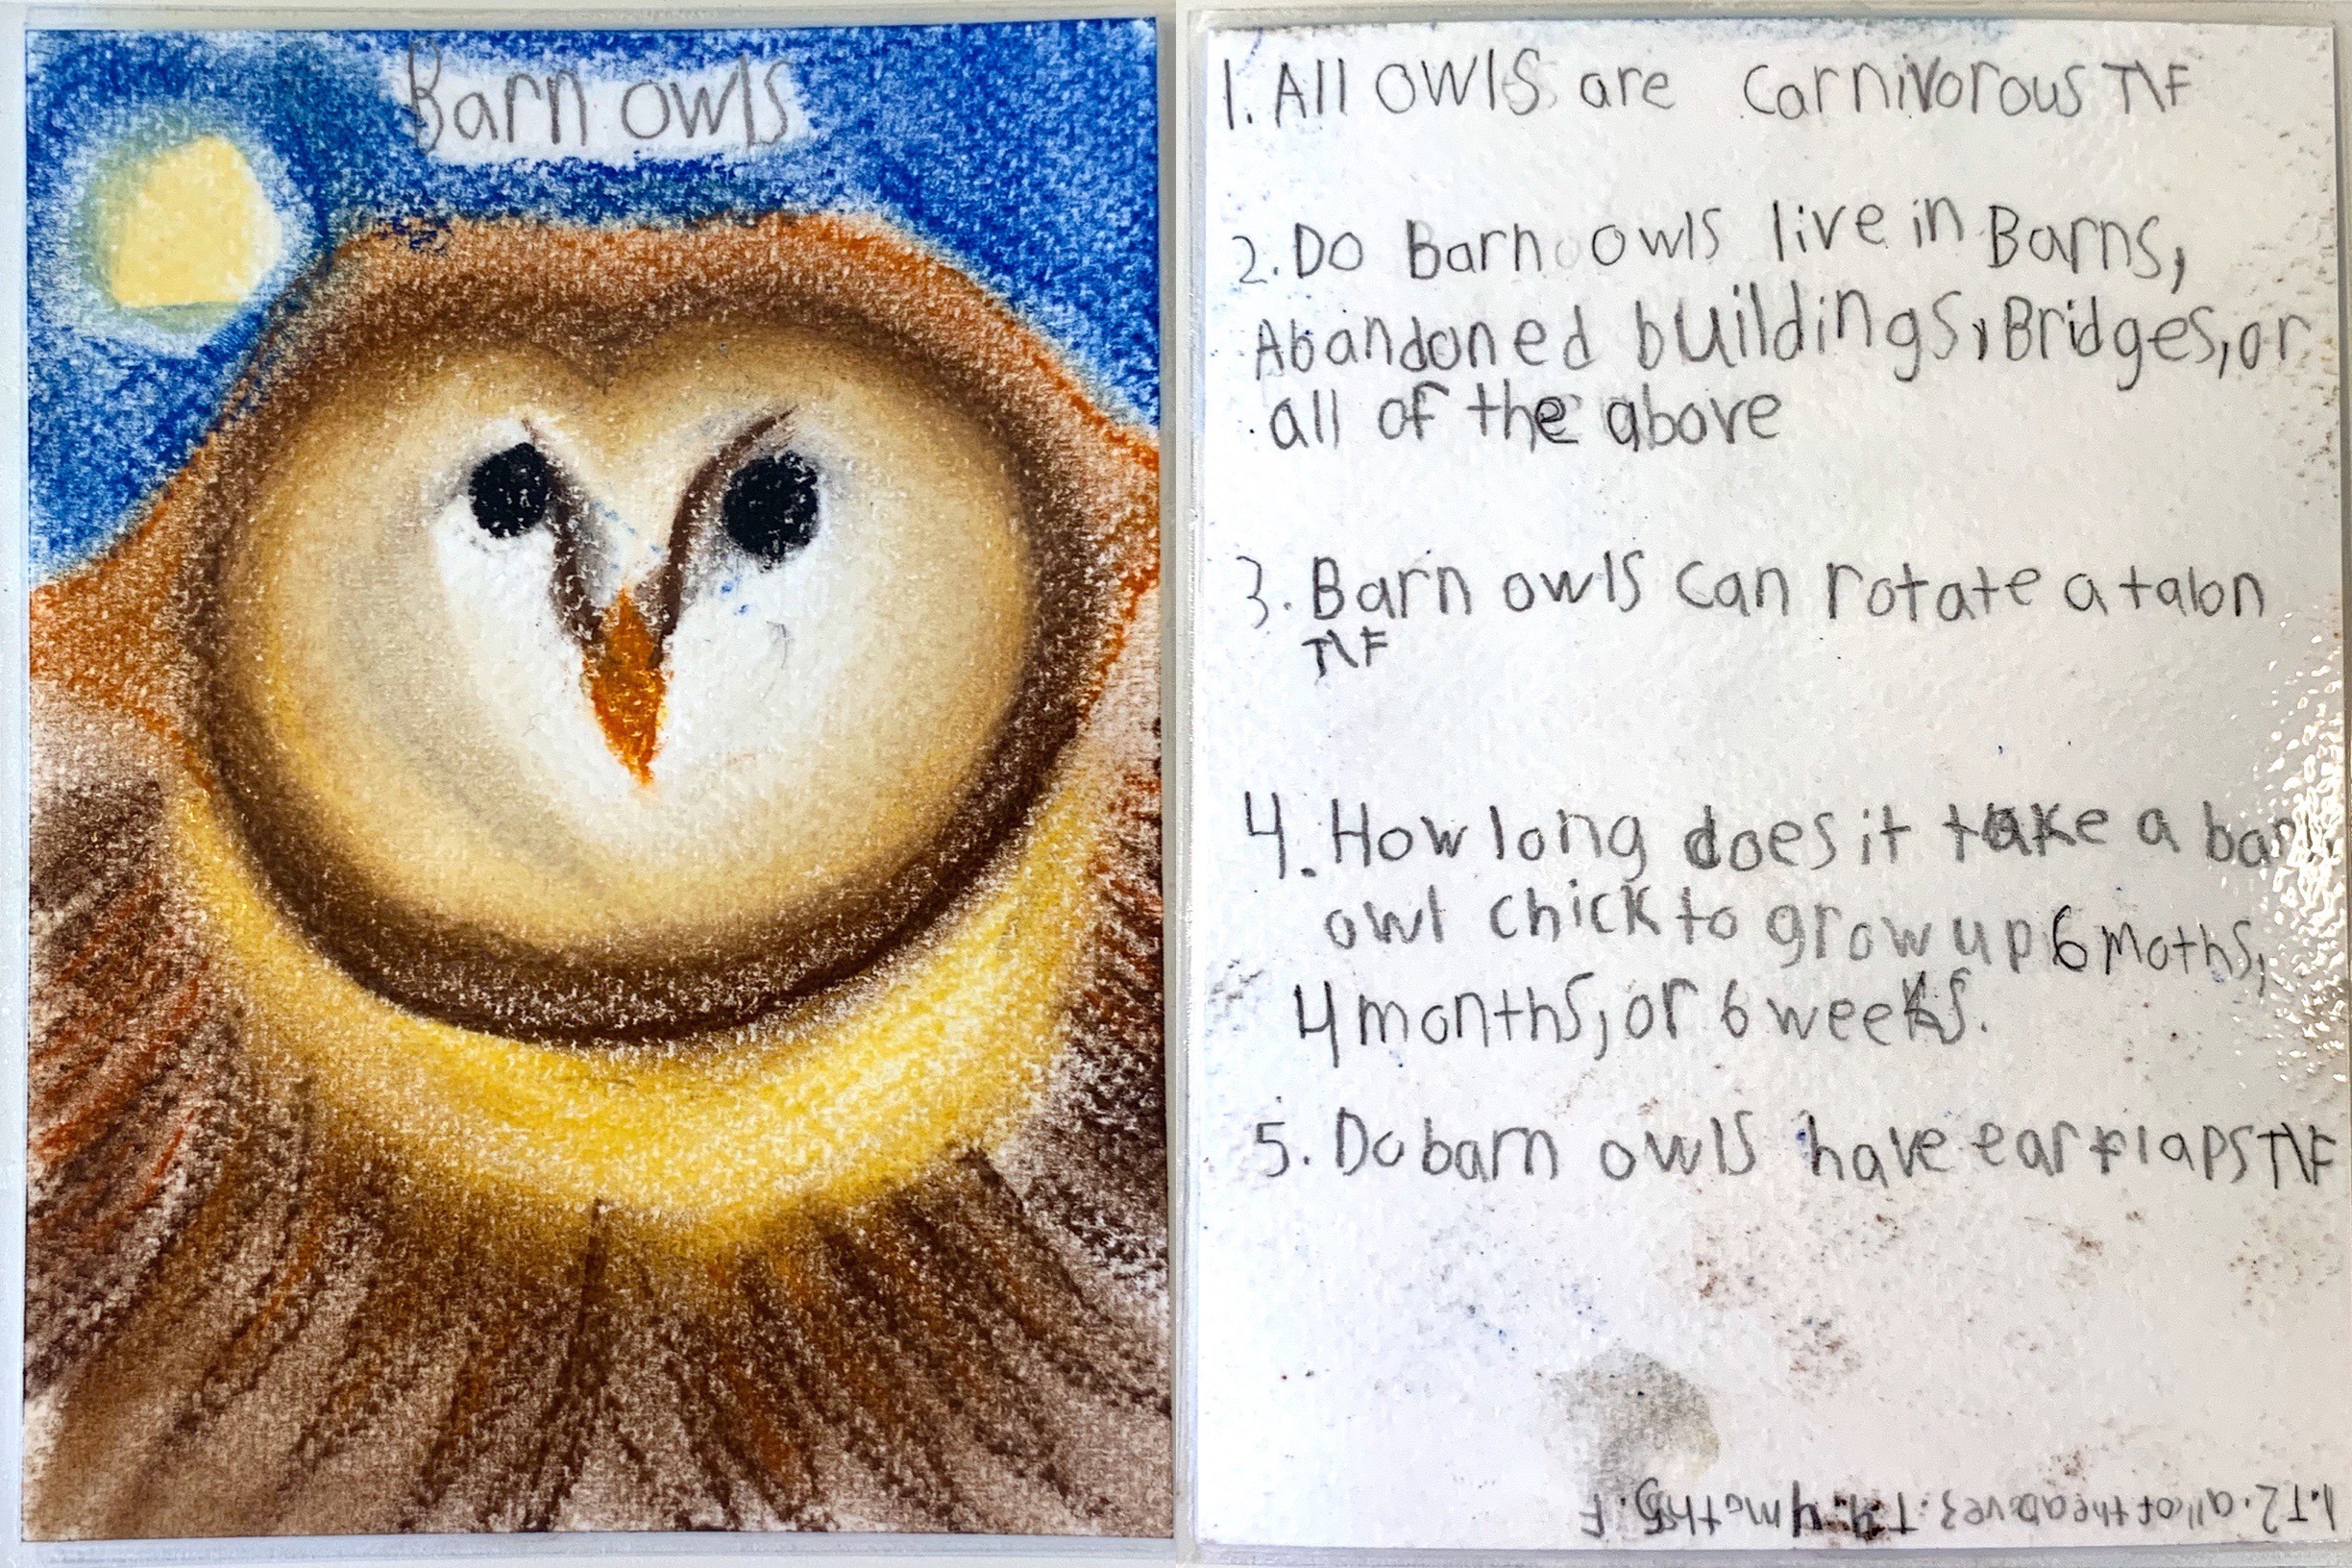 Barn owls
1. All owls are carnivorous T\F
2. Do Barn owls live in Barns,
Abandoned buildings, Bridges, or
all of the above
3. Barn owls can rotate a talon
T\F
4. How long does it take a barn
owl chick to grow up 6 moths,
4 months, or 6 weeks.
5. Do barn owls have ear flaps T\F
1. T 2. all of the above 3. T 4. 4 moths 5. F